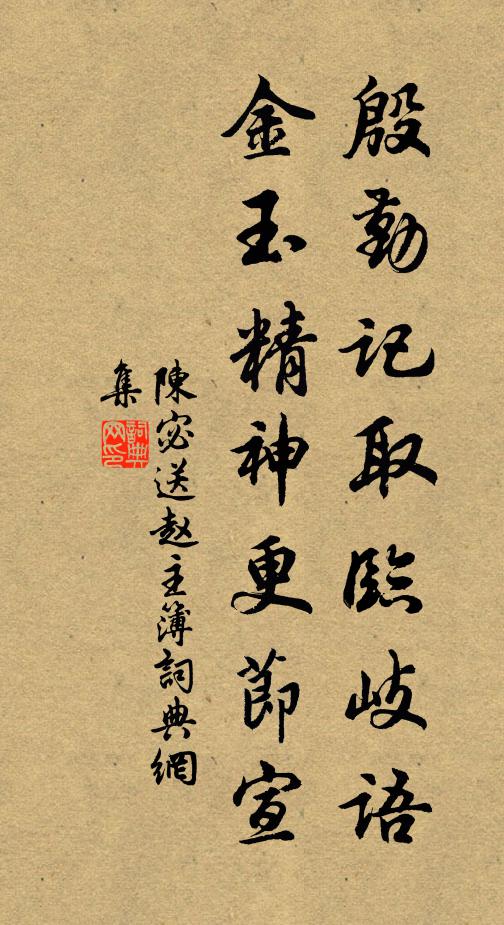 殷勤記取臨岐語
金玉精神更節宣
陳宓送赵主簿詞典網
集
詞典
网印